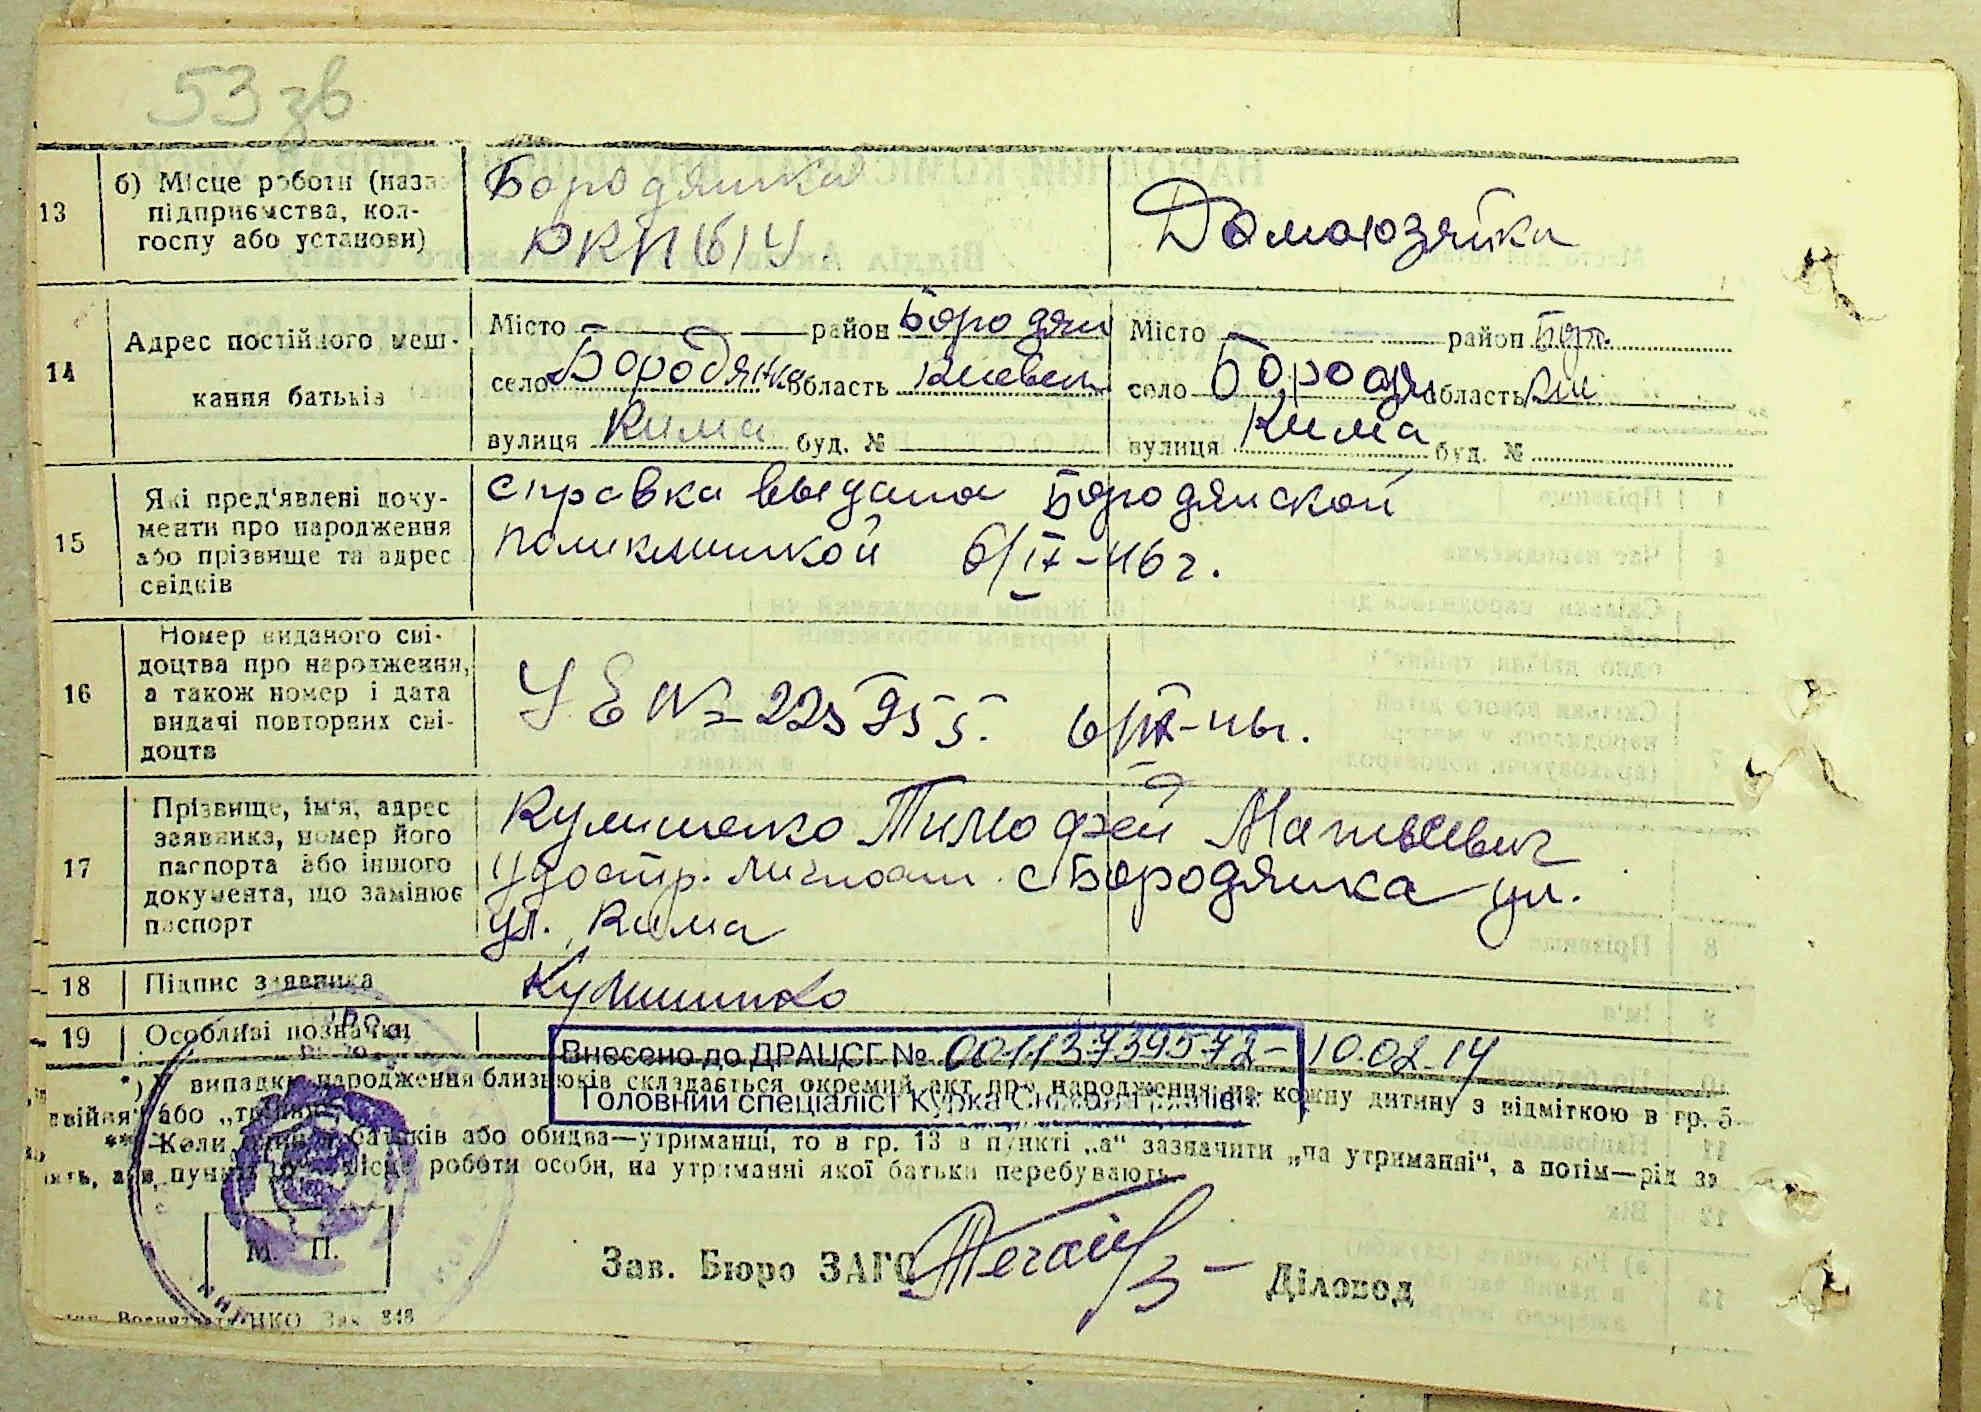 53 зв
13 б) Місце роботи (назва Бородянка
підприємства, кол-
госпу або установи) РКП(б)У. Домохозяйка
14 Адрес постійного меш-
кання батьків
Місто — район Бородян Місто — район Бор.
село Бородянка область Киевск село Бородя область Ки
вулиця Кима буд. № вулиця Кима буд. №
15 Які пред'явлені доку-
менти про народження
або прізвище та адрес
свідків
справка выдана Бородянской
поликлиникой 6/IX-46 г.
16 Номер виданого сві-
доцтва про народження,
а також номер і дата
видачі повторних сві-
доцтв
УЕ № 225955. 6/IX-46г.
17 Прізвище, ім'я, адрес
заявника, номер його
паспорта або іншого
документа, що замінює
паспорт
Кулишенко Тимофей Матвеевич
удостр. личности с Бородянка ул.
ул. Кима
18 Підпис заявника
19 Особливі позначки
Внесено до ДРАЦСГ № 00113739572- 10.02.14
Головний спеціаліст Курка
*) випадку народження близнюків складається окремий акт про народження на кожну дитину з відміткою в гр. 5
двійня" або
** Коли батьків або обидва—утриманці, то в гр. 13 в пункті „а" зазначити „на утриманні", а потім—рід за
роботи особи, на утриманні якої батьки перебувають
М. П.
Зав. Бюро ЗАГС Діловод
Зак. 848